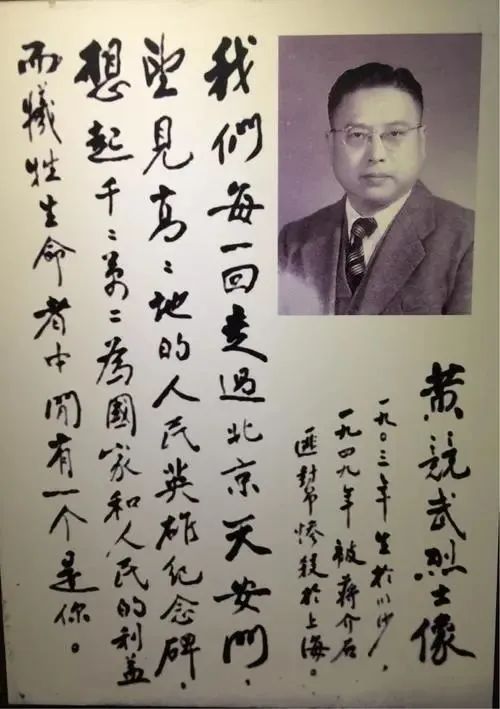 黄競武烈士像
一九〇三年生於川沙，
一九四九年被蔣介石
匪幫慘殺於上海。
我們每一回走過北京天安門，
望見高〻地的人民英雄紀念碑，
想起千〻萬〻為國家和人民的利益
而犧牲生命者中間有一个是你。